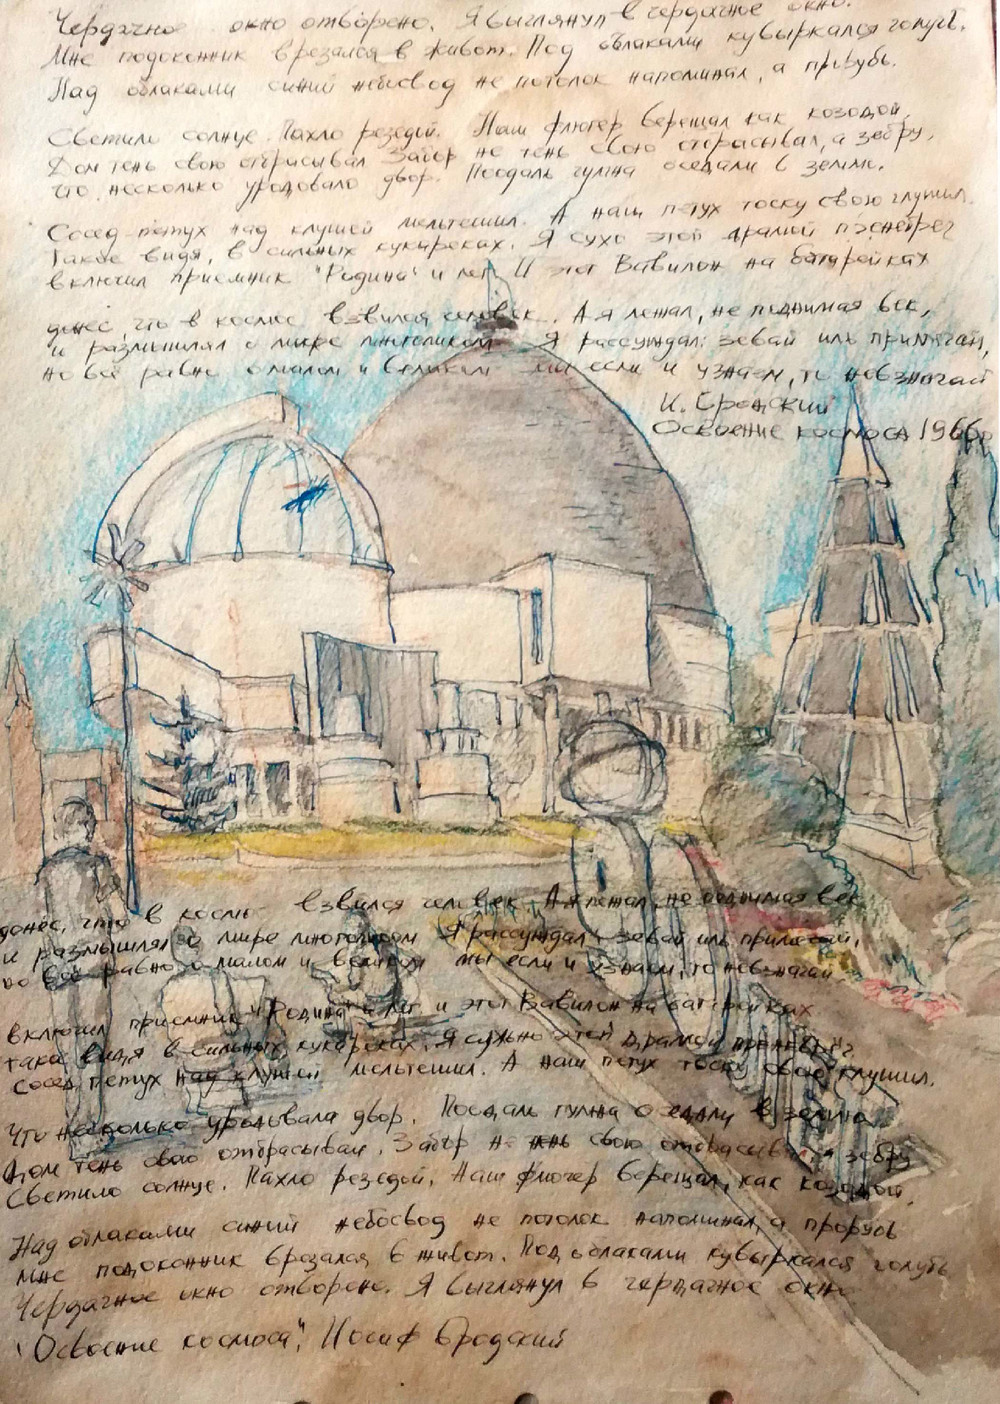 Чердачное окно отворено. Я выглянул в чердачное окно.
Мне подоконник врезался в живот. Под облаками кувыркался голубь.
Над облаками синий небосвод не потолок напоминал, а прорубь.
Светило солнце. Пахло резедой. Наш флюгер верещал как козодой,
Дом тень свою отбрасывал Забор не тень свою отбрасывал, а зебру,
что несколько уродовало двор. Поодаль гумна оседали в землю.
Сосед-петух над клушей мельтешил. А наш петух тоску свою глушил.
Такое видя, в сильных кукареках. Я сухо этой драмой пренебрег
включил приемник "Родина" и лег. И этот Вавилон на батарейках
донёс, что в космос взвился человек. А я лежал, не поднимая век,
и размышлял о мире многоликом Я рассуждал: зевай иль примечай,
но всё равно о малом и великом мы если и узнаем, то невзначай
И. Бродский
Освоение космоса 1966г
донёс, что в космос взвился человек. А я лежал, не поднимая век
и размышлял о мире многоликом Я рассуждал: зевай иль примечай,
но всё равно о малом и великом мы если и узнаем, то невзначай,
включил приемник "Родина" и лег и этот Вавилон на батарейках
тако видя в сильных кукареках. Я сухо этой драмой пренебрег.
Сосед петух над клушей мельтешил. А наш петух тоску свою глушил.
Что несколько уродывала двор. Поодаль гумна оседали в землю
Дом тень свою отбрасывал. Забор не тень свою отбрасывал а зебру
Светило солнце. Пахло резедой. Наш флюгер верещал, как козодой.
Над облаками синий небосвод не потолок напоминал, а прорубь
Мне подоконник врезался в живот. Под облаками кувыркался голубь
Чердачное окно отворено. Я выглянул в чердачное окно
"Освоение космоса", Иосиф Бродский